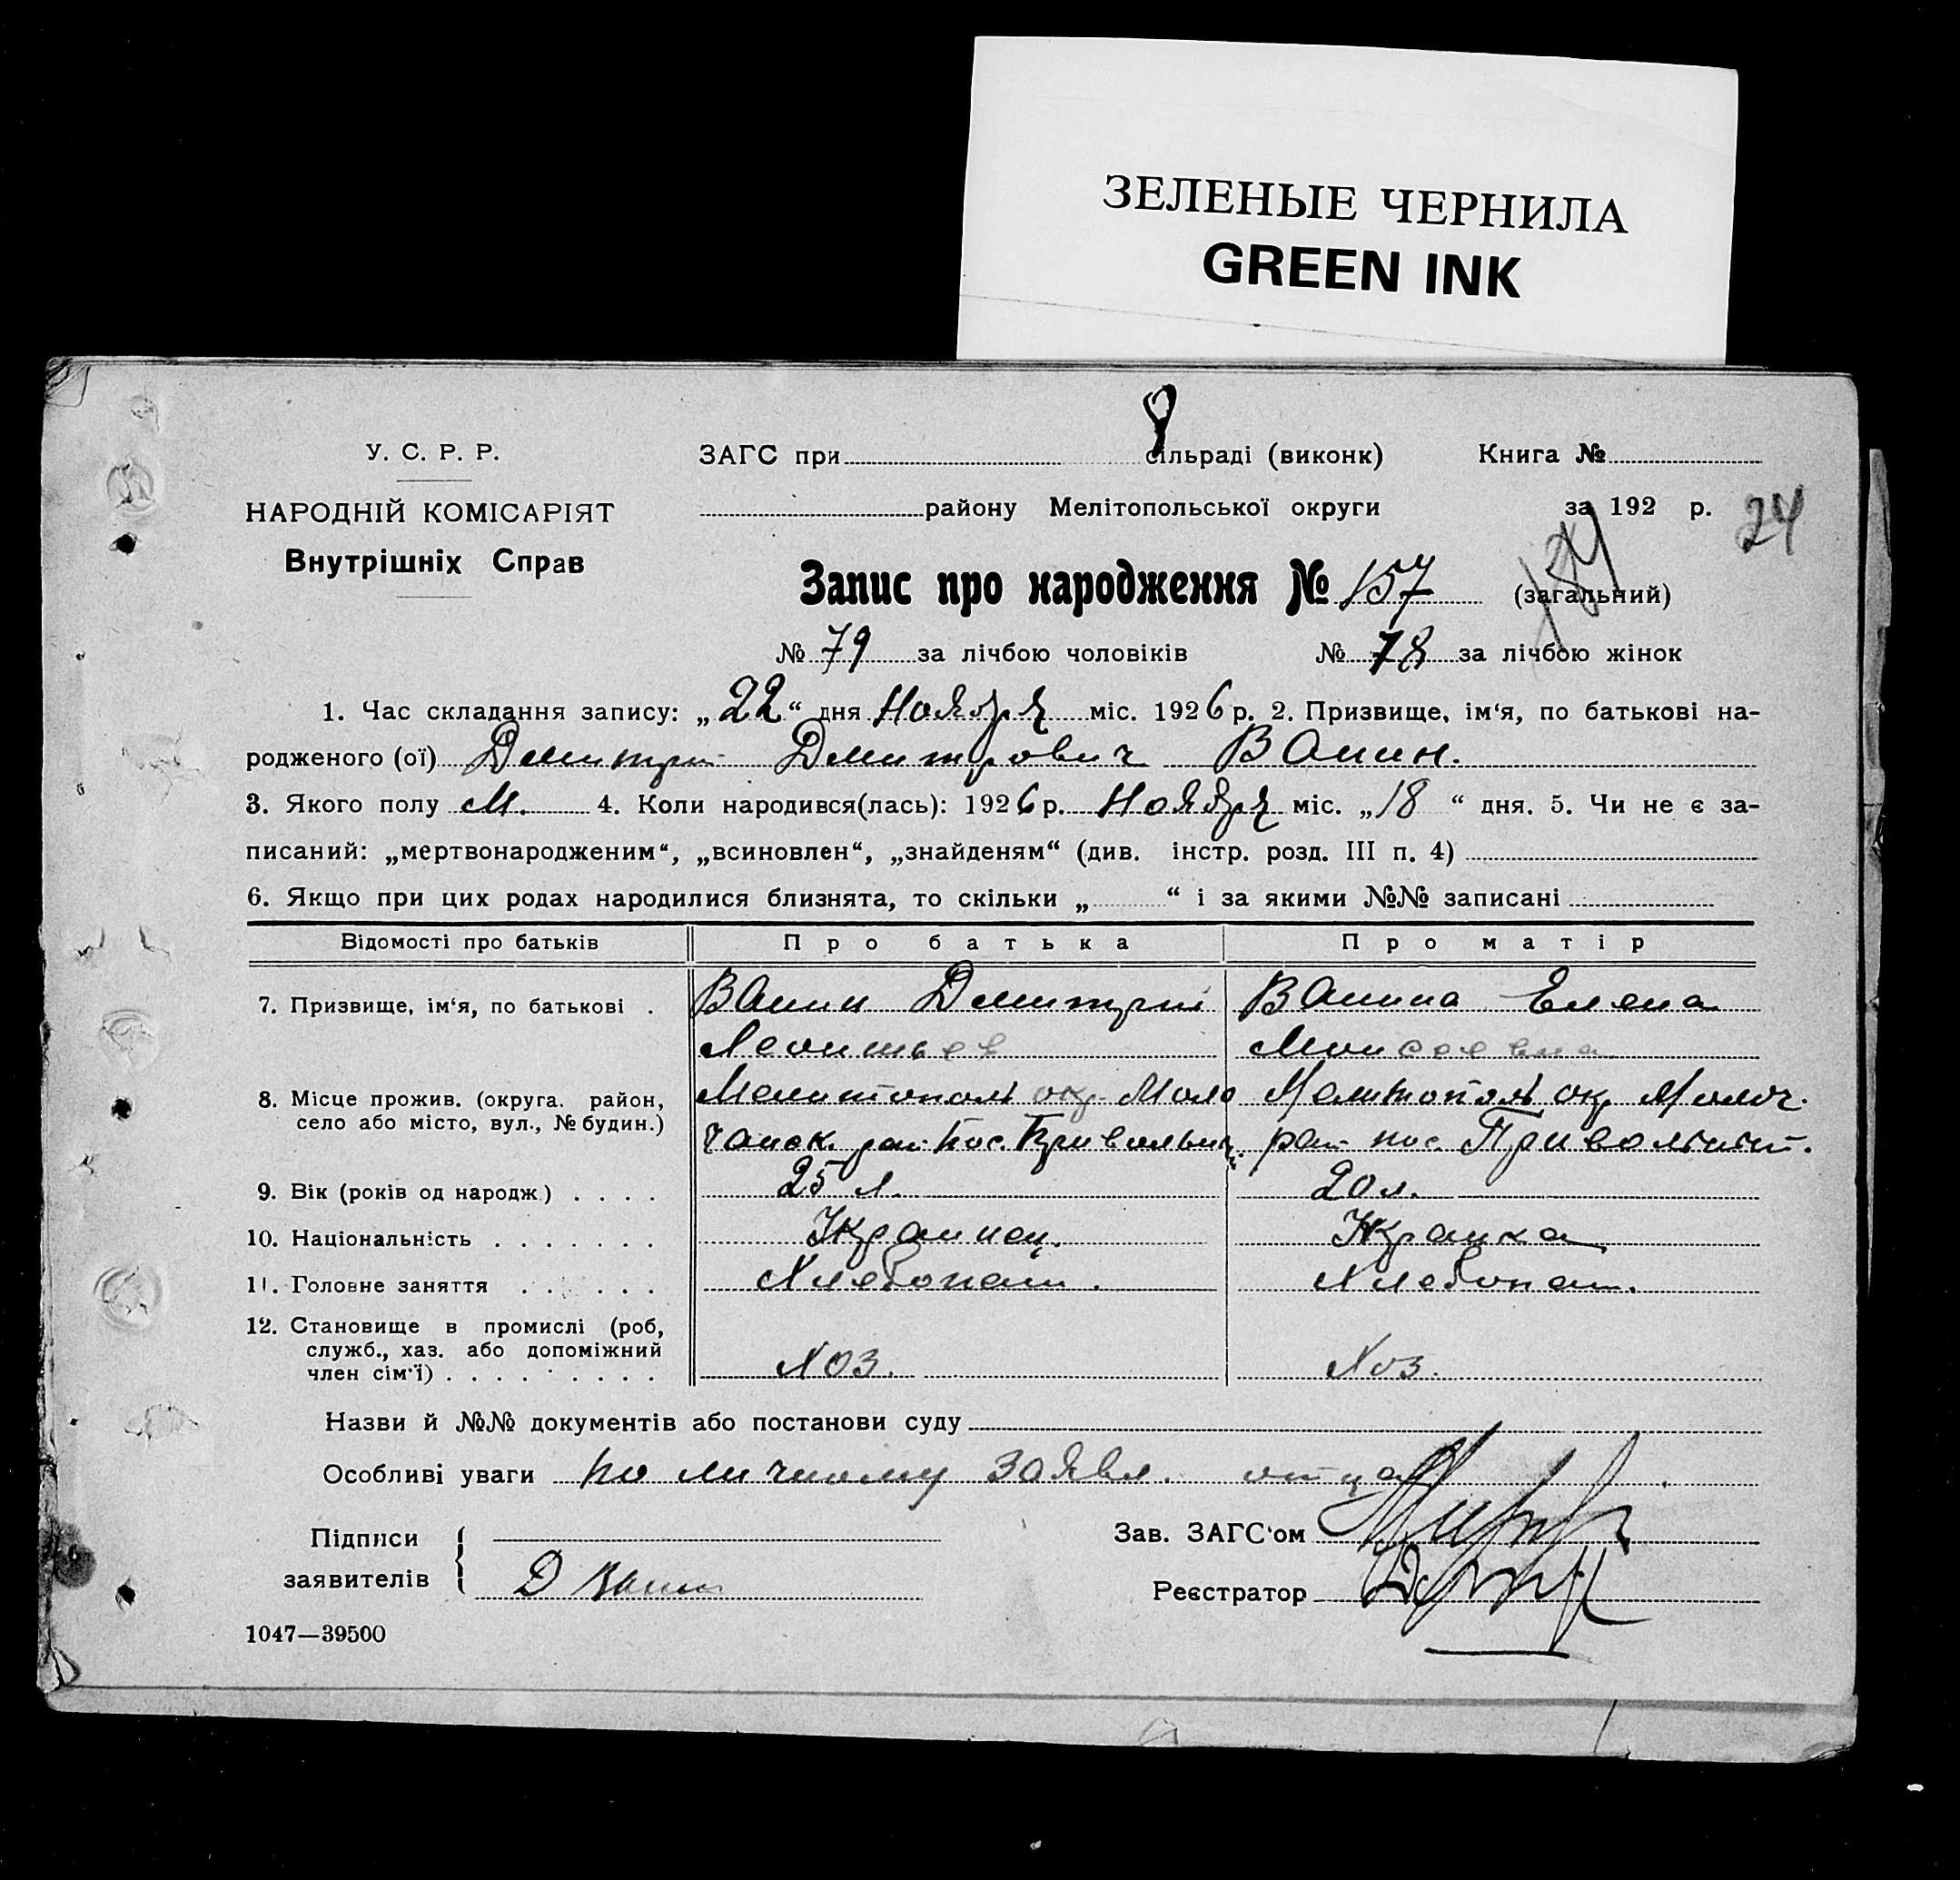 ЗЕЛЕНЫЕ ЧЕРНИЛА
GREEN INK
У. С. Р. Р.
НАРОДНІЙ КОМІСАРІЯТ
Внутрішніх Справ
ЗАГС при сільраді (виконк) Книга №
району Мелітопольської округи за 192 р. 24
Запис про народження № 157 (загальний)
№ 79 за лічбою чоловіків № 78 за лічбою жінок
1. Час складання запису: „22“ дня Ноября міс. 1926 р. 2. Призвище, ім‘я, по батькові на-
родженого (ої) Дмитрий Дмитрович Ванин.
3. Якого полу М. 4. Коли народився(лась): 1926 р. Ноября міс. „18“ дня. 5. Чи не є за-
писаний: „мертвонародженим“, „всиновлен“, „знайденям“ (див. інстр. розд. III п. 4)
6. Якщо при цих родах народилися близнята, то скільки „ “ і за якими №№ записані
Відомості про батьків Про батька Про матір
7. Призвище, ім‘я, по батькові . Ванин Дмитрий Ванина Елена
Леонтьев Моисеевна
8. Місце прожив. (округа. район, Мелитополь окр Моло Мелитополь окр Молоч.
село або місто, вул., № будин.) чанск. рай пос. Привольный. рай пос. Привольный.
9. Вік (років од народж.) . . . . 25 л. 20 л.
10. Національність . . . . . . . Украинец. Украинка
11. Головне заняття . . . . . . Хлебопаш. Хлебопаш.
12. Становище в промислі (роб,
служб., хаз. або допоміжний Хоз. Хоз.
член сім‘ї) . . . . . . . . .
Назви й №№ документів або постанови суду
Особливі уваги по личному заявл. отца
Підписи Зав. ЗАГС‘ом
заявителів Д Ванин Реєстратор
1047—39500